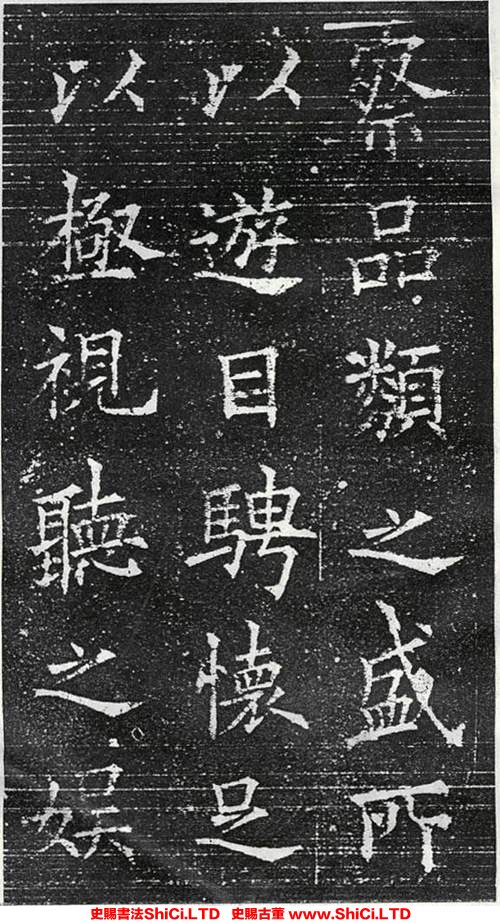 察品類之盛所
以遊目騁懷足
以極視聽之娱
史賜書法ShiCi.LTD 史賜古董 www.ShiCi.LTD